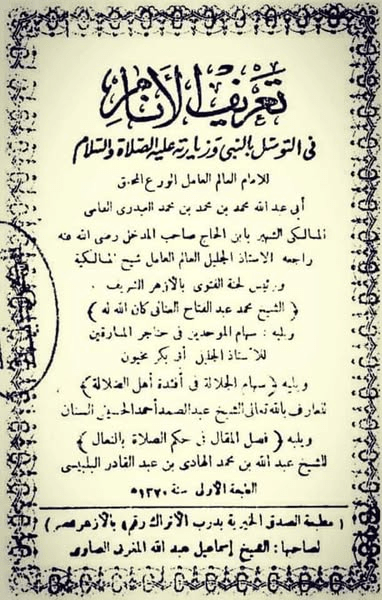 تعريف الأنام
في التوسل بالنبي وزيارته عليه الصلاة والسلام
للامام العالم العامل الورع المحقق
أبى عبد الله محمد بن محمد بن محمد العبدرى الفاسى
المالكى الشهير بابن الحاج صاحب المدخل رضى الله عنه
راجعه الاستاذ الجليل العالم العامل شيخ المالكية
ورئيس لجنة الفتوى بالأزهر الشريف
( الشيخ محمد عبد الفتاح العنانى كان الله له )
ويليه : سهام الموحدين فى حناجر المارقين
للأستاذ الجليل أبو بكر مخيون
ويليه ( سهام الجلالة فى أفئدة أهل الضلالة )
للعارف بالله تعالى الشيخ عبد الصمد أحمد الحسينى السنان
ويليه ( فصل المقال فى حكم الصلاة بالنعال )
للشيخ عبد الله بن محمد الهادى بن عبد القادر البلبيسى
الطبعة الأولى سنة ١٣٧٠ ه
( مطبعة الصدق الخيرية بدرب الأتراك رقم بالأزهر مصر )
لصاحبها : الشيخ إسماعيل عبد الله المغربى الصاوى